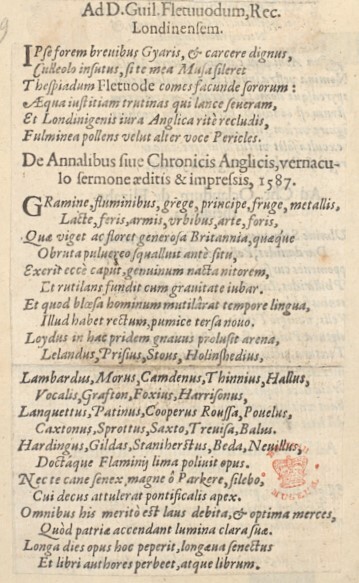 Ad D. Guil. Fletuuodum, Rec.
Londinensem.
IPse forem breuibus Gyaris, & carcere dignus,
Culleolo insutus, si te mea Musa sileret
Thespiadum Fletuode comes facunde sororum:
Æqua iustitiam trutinas qui lance seueram,
Et Londinigenis iura Anglica ritè recludis,
Fulminea pollens velut alter voce Pericles.
De Annalibus siue Chronicis Anglicis, vernacu-
lo sermone æditis & impressis, 1587.
GRamine, fluminibus, grege, principe, fruge, metallis,
Lacte, feris, armis, vrbibus, arte, foris,
Quæ viget ac floret generosa Britannia, quæque
Obruta puluereo squalluit antè situ,
Exerit eccè caput, genuinum nacta nitorem,
Et rutilans fundit cum grauitate iubar.
Et quod blæsa hominum mutilârat tempore lingua,
Illud habet rectum, pumice tersa nouo.
Loydus in hac pridem gnauus prolusit arena,
Lelandus, Prisius, Stous, Holinshedius,
Lambardus, Morus, Camdenus, Thinnius, Hallus,
Vocalis, Grafton, Foxius, Harrisonus,
Lanquettus, Patinus, Cooperus Roussa, Pouelus,
Caxtonus, Sprottus, Saxto, Treuisa, Balus.
Hardingus, Gildas, Staniherstus, Beda, Neuillus,
Doctaque Flaminij lima poliuit opus.
Nec te cane senex, magne ô Parkere, silebo,
Cui decus attulerat pontificalis apex.
Omnibus his meritò est laus debita, & optima merces,
Quòd patriæ accendant lumina clara suæ.
Longa dies opus hoc peperit, longæua senectus
Et libri authores perbeet, atque librum.